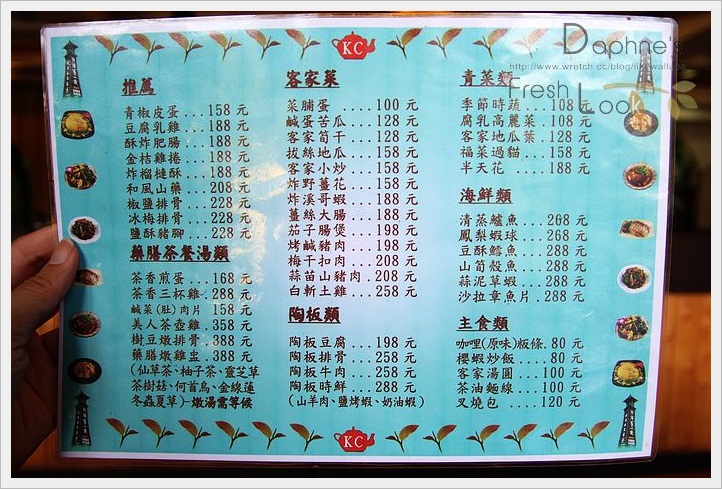 Daphne's
http://www.wretch.cc/blog/
Fresh Look
KC
推薦
青椒皮蛋...158元
豆腐乳雞...188元
酥炸肥腸...188元
金桔雞捲...188元
炸榴槤酥...188元
和風山藥...208元
椒鹽排骨...228元
冰梅排骨...228元
鹽酥豬腳...228元
藥膳茶餐湯類
茶香煎蛋...168元
茶香三杯雞.288元
鹹菜(肚)肉片 158元
美人茶壺雞.358元
樹豆燉排骨.388元
藥膳燉雞盅.388元
(仙草茶、柚子茶、靈芝草
茶樹菇、何首烏、金線蓮
冬蟲夏草)-燉湯需等候
客家菜
菜脯蛋 ....100元
鹹蛋苦瓜...128元
客家筍干...128元
拔絲地瓜...158元
客家小炒...158元
炸野薑花...158元
炸溪哥蝦...188元
薑絲大腸...188元
茄子腸煲...198元
烤鹹豬肉...198元
梅干扣肉...208元
蒜苗山豬肉.208元
白斬土雞...258元
陶板類
陶板豆腐...198元
陶板排骨...258元
陶板牛肉...258元
陶板時鮮...288元
(山羊肉、鹽烤蝦、奶油蝦)
青菜類
季節時蔬...108元
腐乳高麗菜.108元
客家地瓜葉.128元
福菜過貓...158元
半天花 ....188元
海鮮類
清蒸鱸魚...268元
鳳梨蝦球...268元
豆酥鱈魚...288元
山筍殼魚...288元
蒜泥草蝦...288元
沙拉章魚片.288元
主食類
咖哩(原味)板條.80元
櫻蝦炒飯....80元
客家湯圓...100元
茶油麵線...100元
叉燒包 ....120元
KC